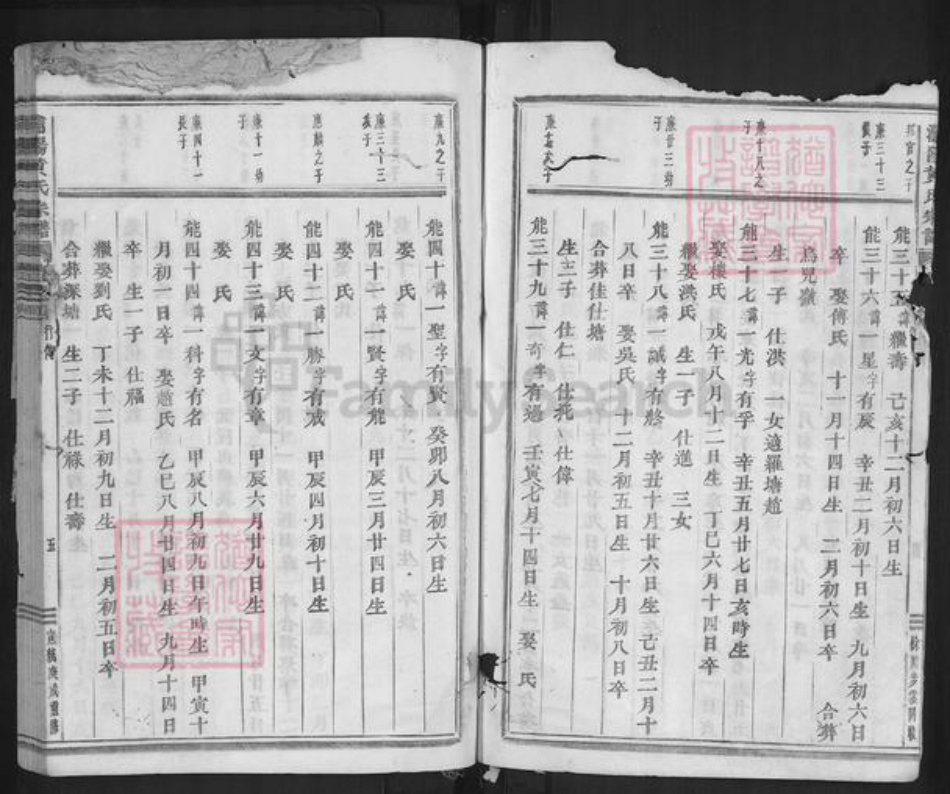 邦官之子
能三十五 諱繼壽 己亥十二月初六日生
康三十三
長子
能三十六 諱一星字有辰 辛丑二月初十日生 九月初六日
卒 娶傅氏 十一月十四日生 二月初六日卒 合葬
生一子 仕洪 一女適羅塘趙
康十八之
子
能三十七 諱一光字有孚 辛丑五月廿七日亥時生
娶樓氏 戊午八月十二日生 丁巳六月十四日卒
繼娶洪氏 生一子 仕進 三女
康廿三幼
子
能三十八 諱一誠字有愨 辛丑十月廿六日生 己丑二月十
八日卒 娶吳氏 十二月初五日生 十月初八日卒
合葬佳仕塘
生三子 仕仁 仕托 仕偉
能三十九 諱一奇字有過 壬寅七月十四日生 娶 氏
康九之子
能四十 諱一聖字有賢 癸卯八月初六日生
娶 氏
康三十三
次子
能四十一 諱一賢字有能 甲辰三月廿四日生
娶 氏
應麟之子
能四十二 諱一勝字有戒 甲辰四月初十日生
娶 氏
康十一幼
子
能四十三 諱一文字有章 甲辰六月廿九日生
娶 氏
康四十一
長子
能四十四 諱一科字有名 甲辰八月初九日午時生 甲寅十
月初一日卒 娶趙氏 乙巳八月廿四日生 九月十四日
卒 生一子 仕福
繼娶劉氏 丁未十二月初九日生 二月初五日卒
合葬深塘 生二子 仕祿 仕壽
黃氏宗譜
五
宣統庚戌重修
FamilySearch